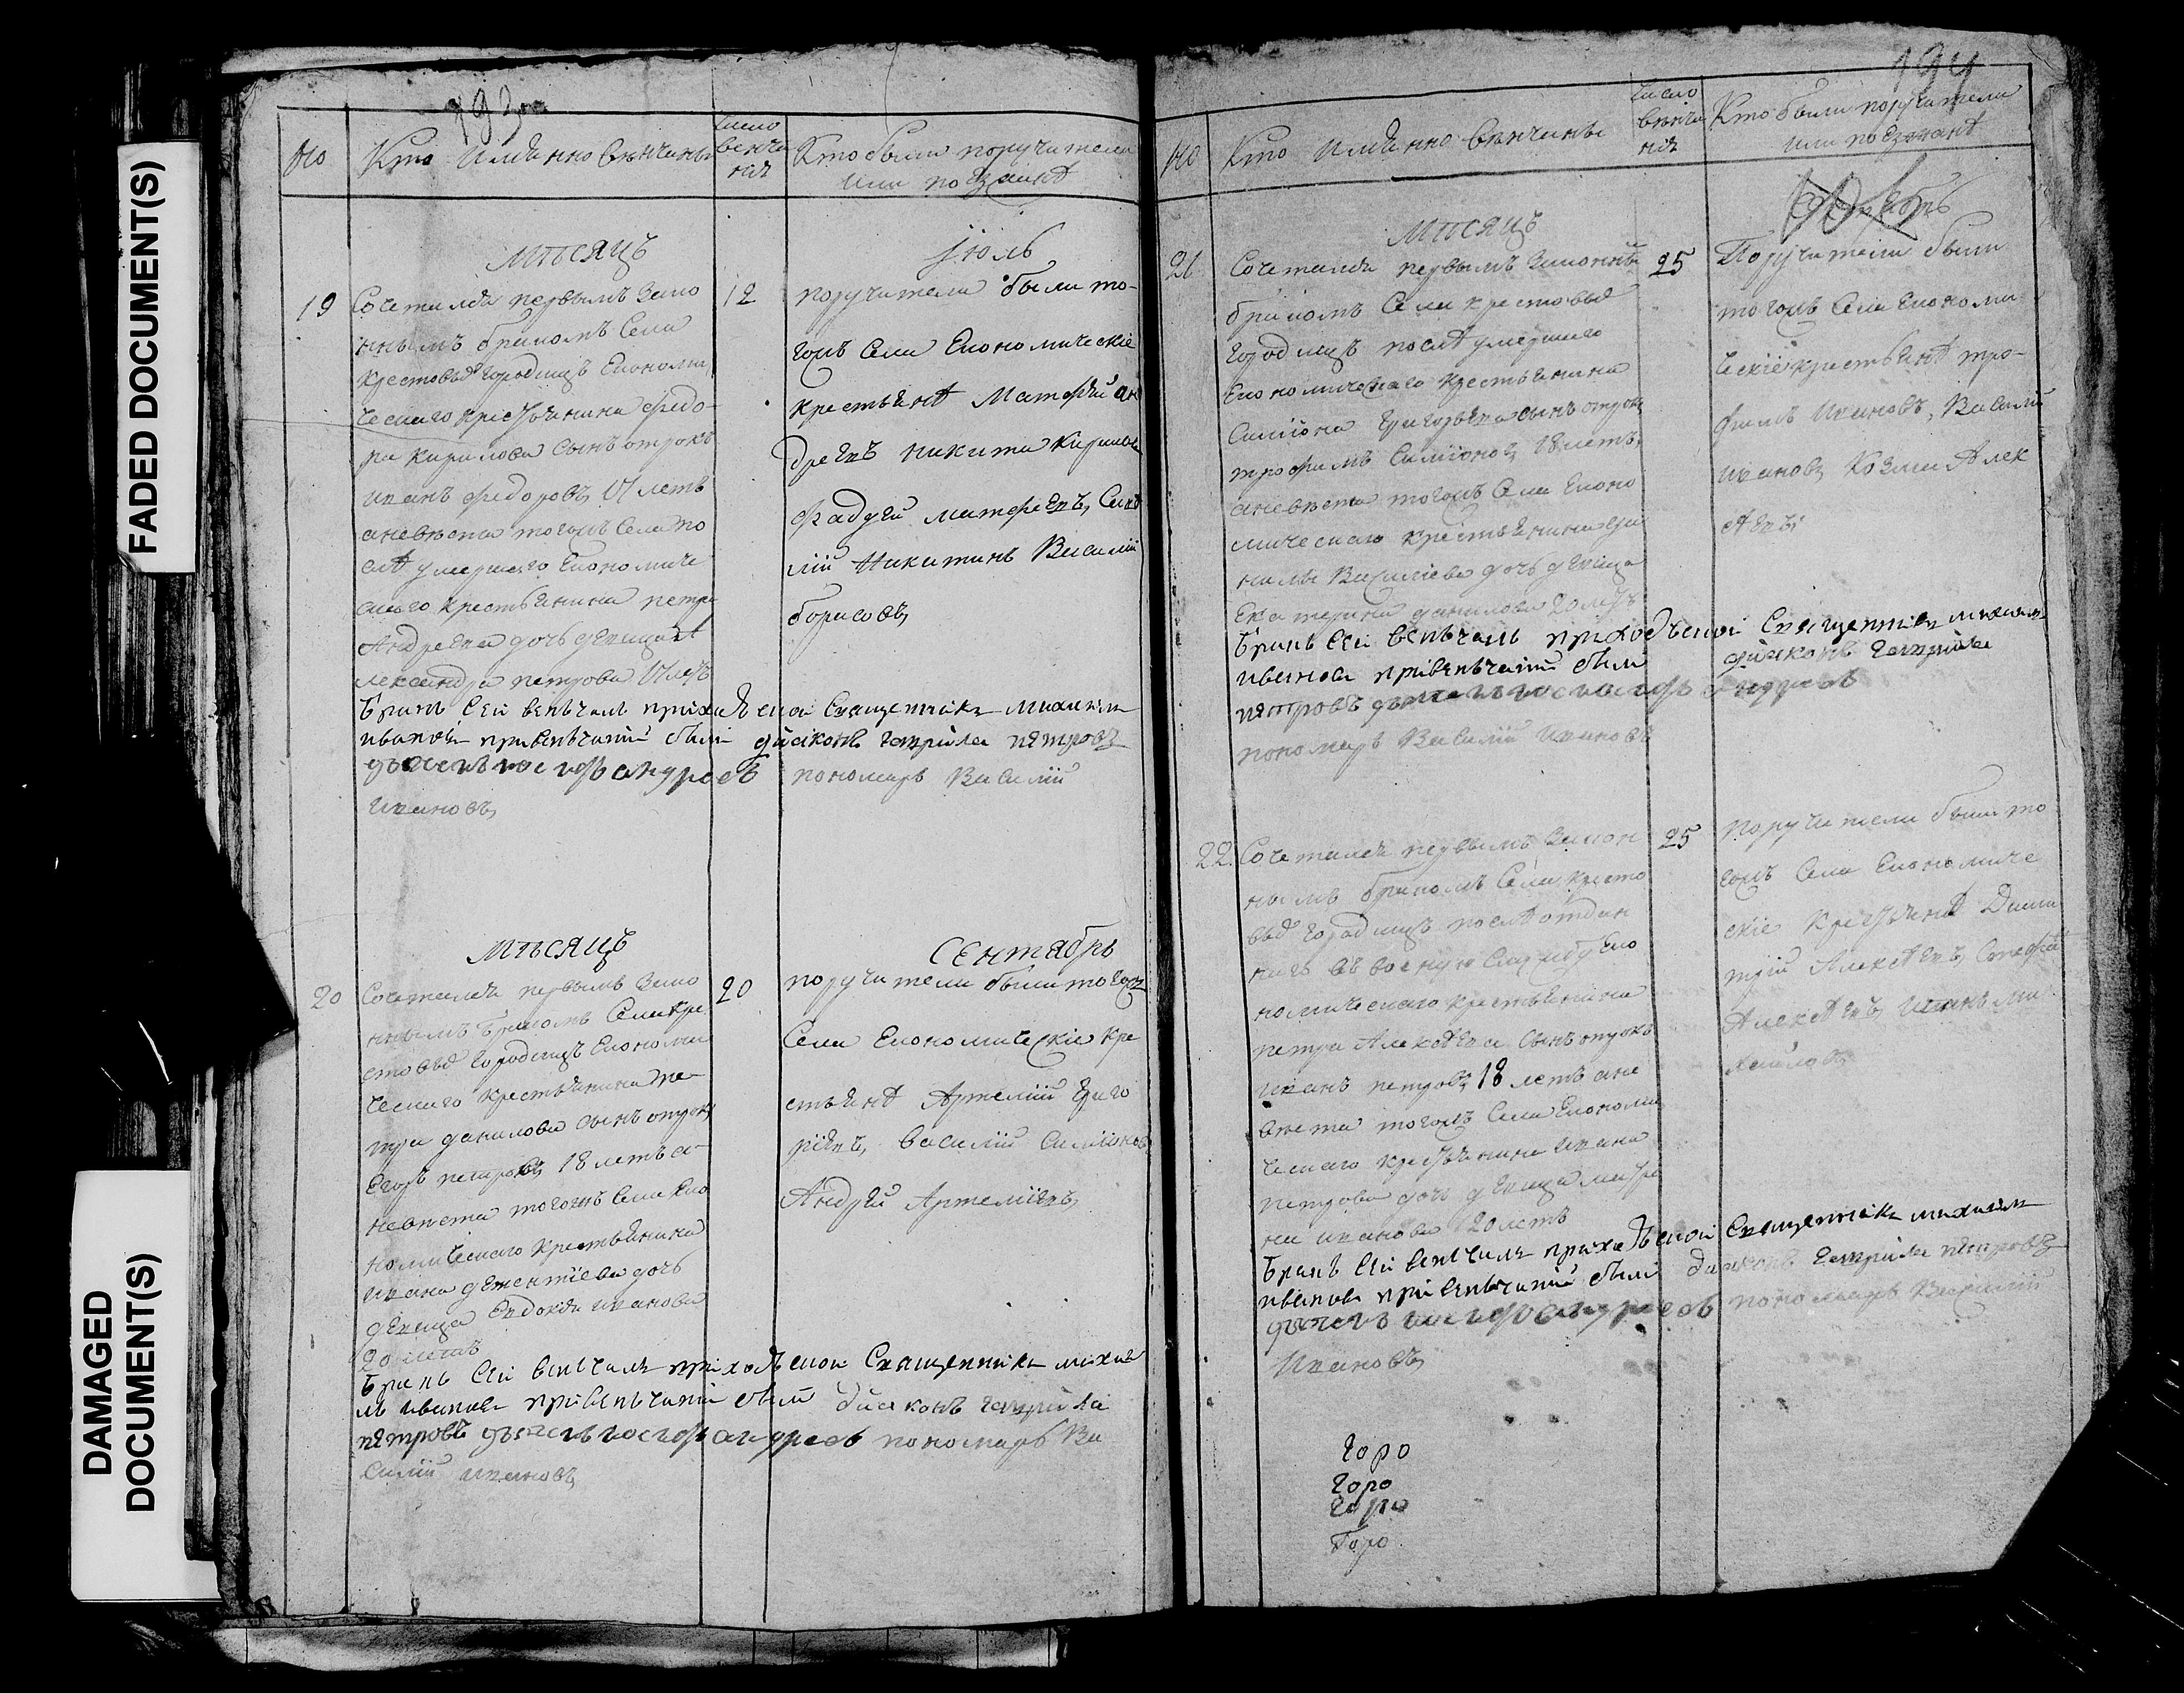 FADED DOCUMENT(S)
DAMAGED
DOCUMENT(S)
193
№
Кто имянно венчаны
Число
венча
нія
Кто были поручители
или поезжанѣ
мѣсяцъ
июль
19
Сочетался первымъ зако
ннымъ бракомъ села
крестовыхъ городищъ Економи
ческаго крестьянина федо
ра кирилова сынъ отрокъ
иванъ федоровъ, летъ
аневѣста тогожъ села по
слѣ умершаго Економиче
скаго крестьянина петра
Андреева дочь девица А
лександра петрова летъ
12
поручители были то-
гожъ села Економическіе
крестьянѣ Матфѣй ан
дреевъ никита кирилов
фадѣй матфеевъ,
лій Никитинъ Василій
борисовъ,
бракъ сей венъчалъ приходъской священникъ михаилъ
ивановъ привенъчаній были дйяконъ гаврила пѣтровъ
дьячекъ иосифъ андреевъ пономарь Василій
ивановъ,
мѣсяцъ
сентябрь
20
Сочетался первымъ зако
ннымъ бракомъ села кре
стовыхъ городищъ Економи
ческаго крестьянина пе-
тра данилова сынъ отрокъ
егоръ петровъ, 18 летъ а-
невѣста тогожъ села Еко
номическаго крестьянина
ивана дементіева дочь
девица Евдокія иванова
20 летъ
20
поручители были тогожъ
села Економическіе кре
стьянѣ Артемій григо
ріевъ, василій симіоновъ
Андрей Артеміевъ,
бракъ сей венъчалъ приходъской священникъ михаи
лъ ивановъ привенъчаній были дйяконъ гаврила
пѣтровъ дьячекъ иосифъ андреевъ пономарь Ва
силій ивановъ,
194
№
Кто имянно венчаны
Число
венча
нія
Кто были поручители
или поезжанѣ
мѣсяцъ
21
Сочетался первымъ законны
бракомъ села крестовыхъ
городищъ послѣ умершаго
Економическаго крестьянина
симіона григорьева сынъ отрокъ
трофимъ симіоновъ, 18 летъ,
аневѣста тогожъ села Еконо
мическаго крестьянина да
нилы Василіева дочь девица
Екатерина данилова 20 летъ
25
Поручители были
тогожъ села Економи
ческіе крестьянѣ тро-
фимъ ивановъ, Василій
ивановъ, Козма Алек
сѣевъ
бракъ сей венъчалъ приходъской священникъ михаилъ
ивановъ привенъчаній были дйяконъ гаврила
пѣтровъ дьячекъ иосифъ андреевъ
пономарь Василій ивановъ
22.
Сочетался первымъ закон
нымъ бракомъ села кресто
выхъ городищъ послѣ отдан
наго въ военную службу Еко
номическаго крестьянина
петра Алексѣева сынъ отрокъ
иванъ петровъ, 18 летъ ане
вѣста тогожъ села Економи
ческаго крестьянина ивана
петрова дочь девица матре
на иванова 20 летъ
25
поручители были то
гожъ села Економиче
скіе крестьянѣ Дими
трій Алексѣевъ, Стефа
Алексѣевъ, иванъ ми
хайловъ
бракъ сей венъчалъ приходъской священникъ михаилъ
ивановъ привенъчаній были дйяконъ гаврила пѣтровъ
дьячекъ иосифъ андреевъ пономарь Василій
ивановъ,
горо
горо
горо
Горо